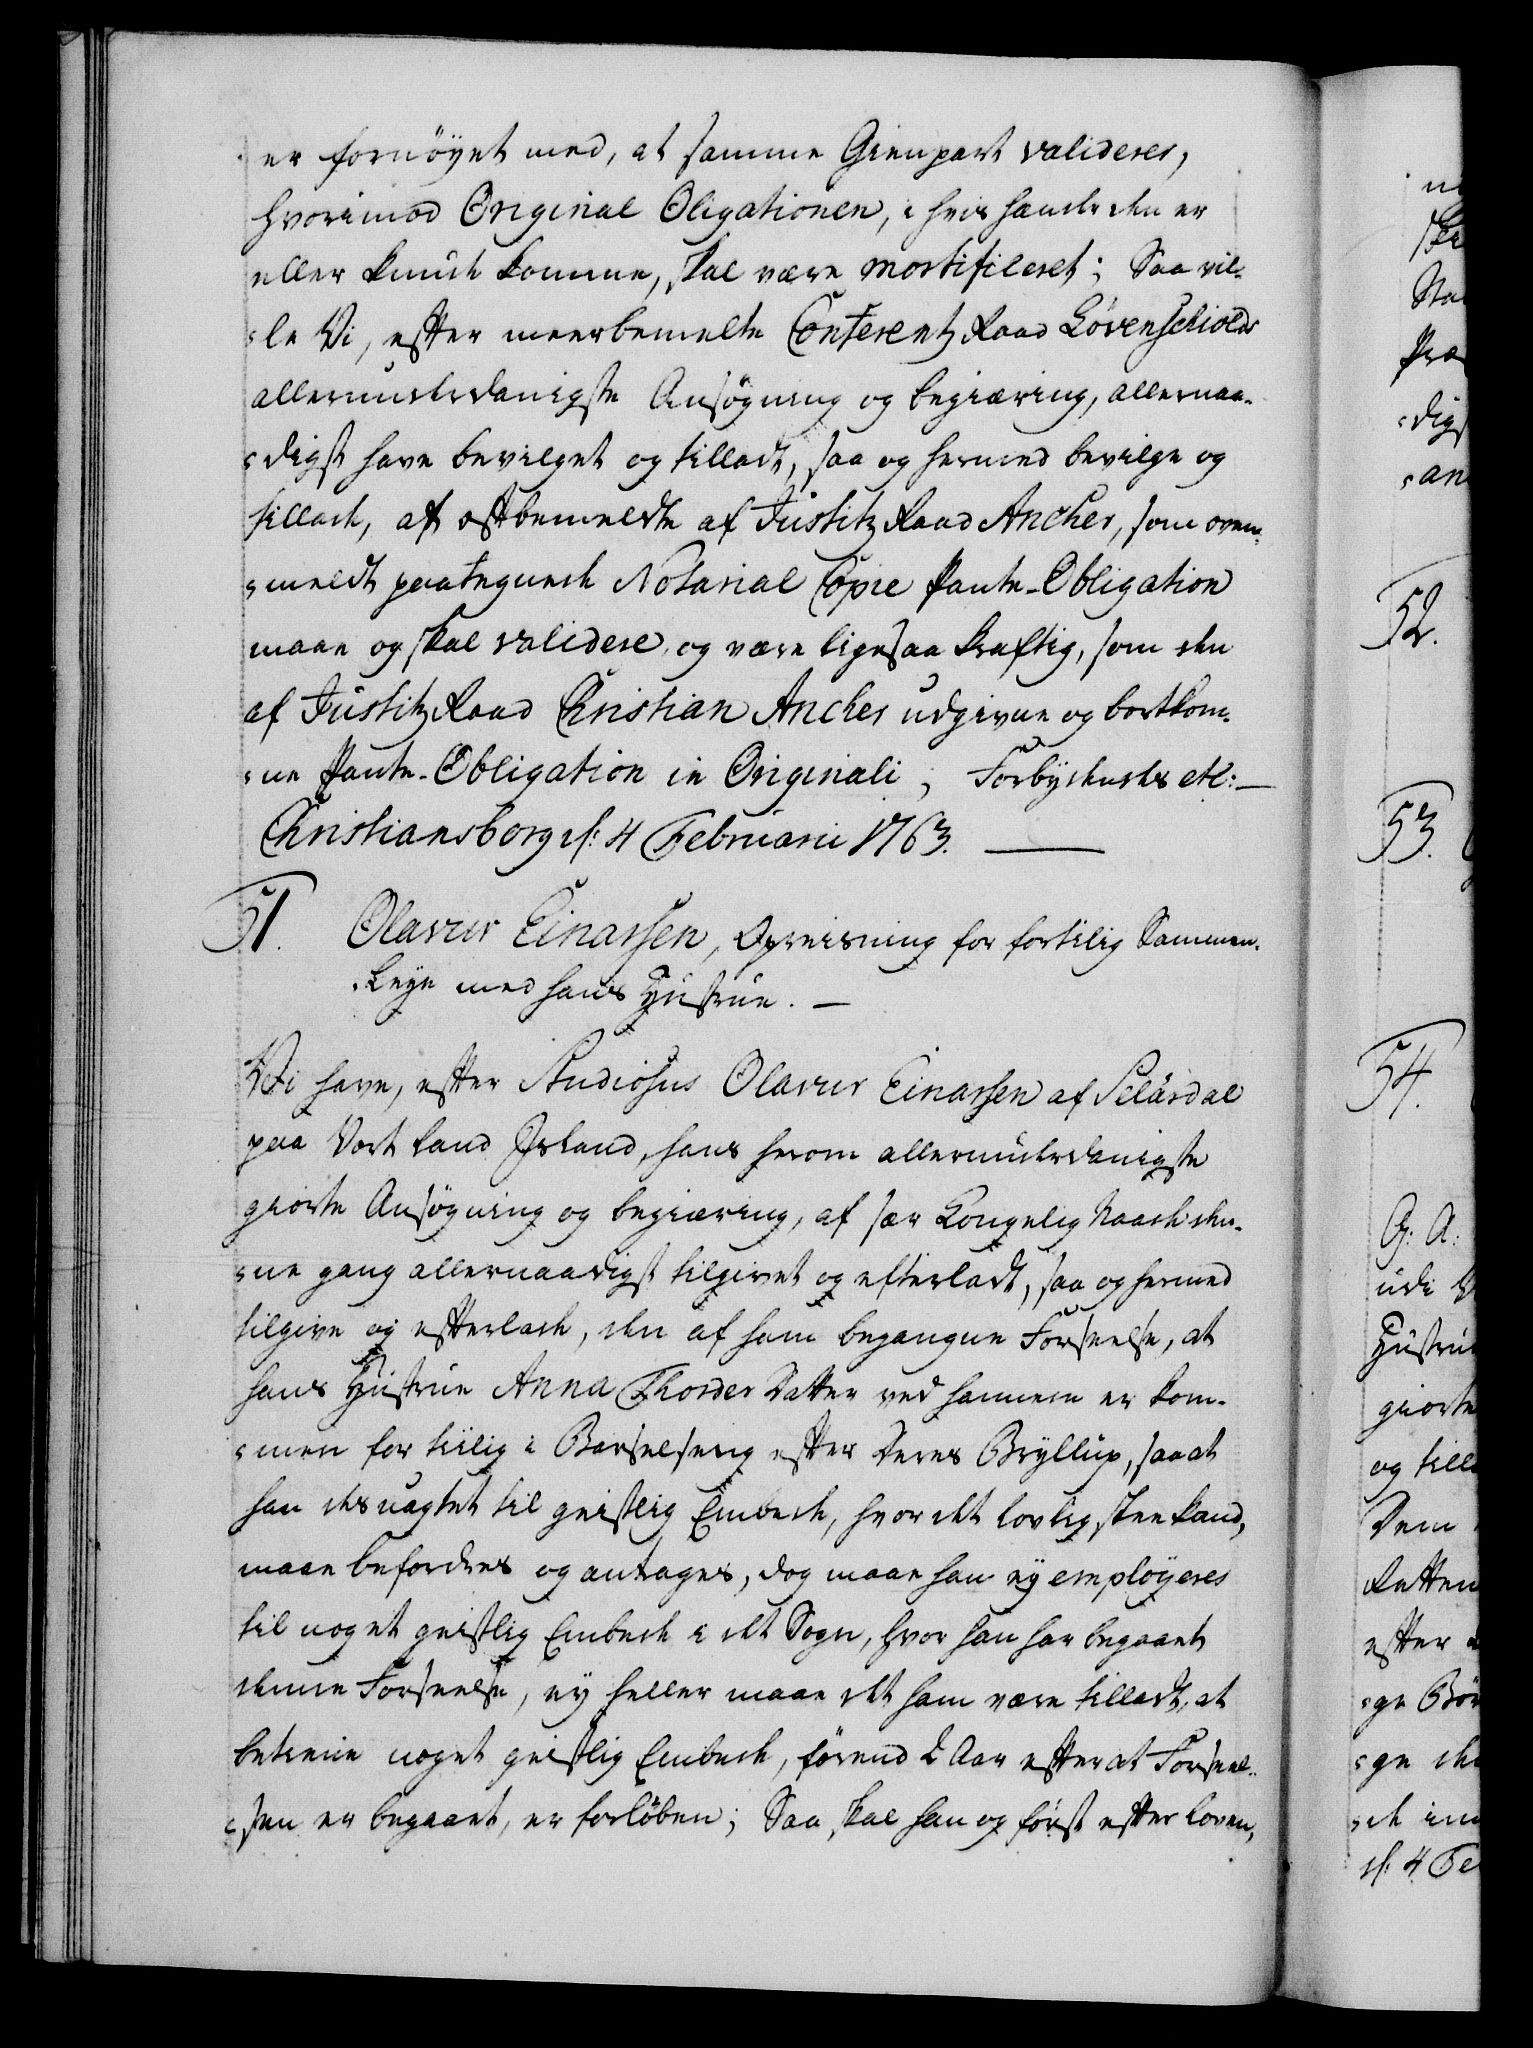 er fornöyet med, at samme Gienpart valideres,
hvorimod Original Oligationen, i hvis hænde den er
eller kunde komme, skal være mortificeret; Saa vil-
-le Vi, efter meerbemelte Conferentz Raad Løvenschiolds
allerunderdanigste Ansøgning og begiæring, allernaa-
-digst have bevilget og tilladt, saa og hermed bevilge og
tillade, at oftbemeldte af Justitz Raad Ancher, som oven-
-meldt paategnede Notarial Copie Pante-Obligation
maae og skal validere og være ligesaa kraftig, som den
af Justitz Raad Christian Ancher udgivne og bortkom-
-ne Pante-Obligation in Originali; Forbydendes etc:
Christiansborg d: 4 Februarii 1763.
51. Olavur Einarsen, Opreisning for fortilig Sammen-
-Leye med hans Hustrue.
Vi have, efter Studiosus Olavur Einarsen af Selárdal
paa Vort Land Island, hans herom allerunderdanigste
giorte Ansøgning og begiæring, af sær Kongelig Naade den-
-ne gang allernaadigst tilgivet og efterladt, saa og hermed
tilgive og efterlade, den af ham begangne Forseelse, at
hans Hustrue Anna Thorder Datter ved hannem er kom-
-men for tiilig i Barselseng efter deres Bryllup, saa at
han des uagtet til geistlig Embede, hvor det lovlig skee kand,
maae befordres og antages, dog maae han ey employeres
til noget geistlig Embede i det Sogn, hvor han har begaaet
denne Forseelse, ey heller maae det ham være tilladt, at
betræde noget geistlig Embede, førend 2 Aar efter at Forseel-
-sen er begaaet, er forløben; Saa skal han og først efter Loven,
52.
53.
54.
G: A:
udi
Hustrue
giorte
og till
Dem
Retten
efter
-ge
-ge
d: 4 Fe